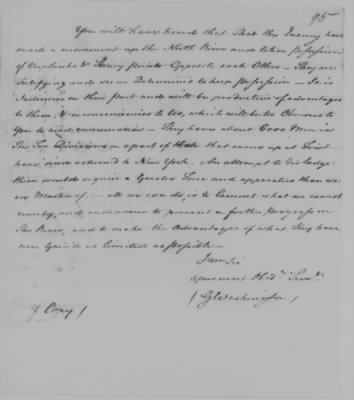 95
You will have heard that that the Enemy have
made a movement up the North River and taken possession
of Verplanks & Stoney points opposite each other — They are
fortifying and seem Determined to keep possession — It is
Judicious on their part and will be productive of advantages
to them, & inconveniencies to Us, which will be too Obvious to
You to need enumeration — They have about 6000 Men in
the two Divisions — a part of those that came up at first
have since returned to New York. An attempt to dislodge
them would require a Greater force and apparatus than we
are Master of — all we can do, is to Lament what we cannot
remedy, and endeavour to prevent a further progress on
the River, and to make the Advantages of what they have
now Gained as limited as possible —
I am Sir
your most Obedt. Servt.
(Copy) / GWashington /